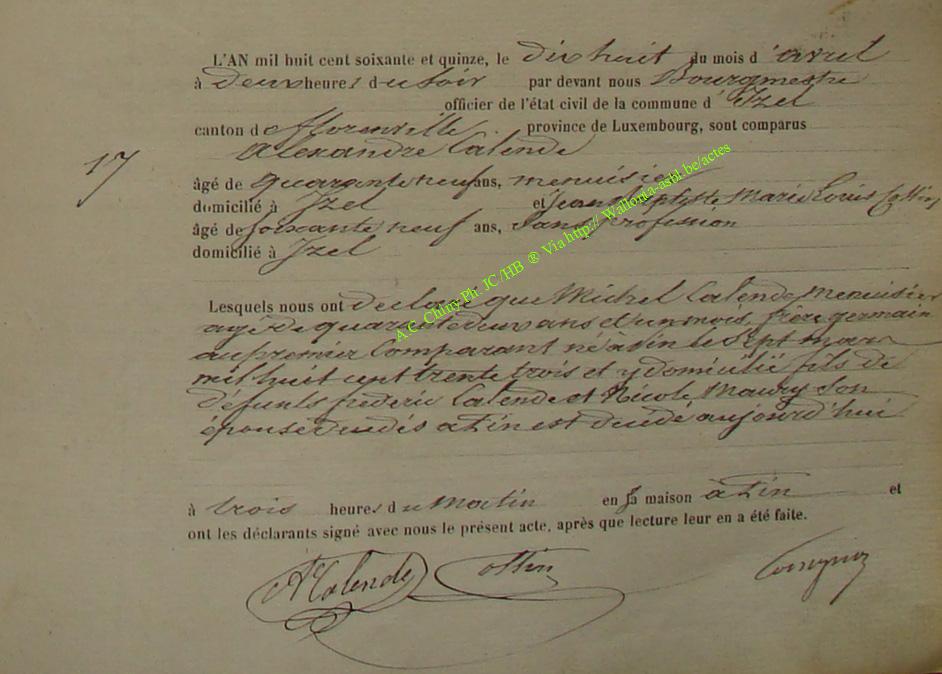 L'AN mil huit cent soixante et quinze, le dix huit du mois d'avril
à deux heures du soir par devant nous Bourgmestre
officier de l'état civil de la commune d'Izel
canton de florenville. province de Luxembourg, sont comparus
Alexandre Calende
17
âgé de quarante neuf ans, menuisier
domicilié à Izel et jean Baptiste Marie Louis Collin
âgé de soixante neuf ans, sans profession
domicilié à Izel
Lesquels nous ont déclaré que Michel Calende menuisier
agé de quarante deux ans et un mois, frère germain
au premier Comparant né à Pin le sept mars
mil huit cent trente trois et y domicilié fils de
défunts frédéric Calende et Nicole Maury son
épouse à Pin est décédé aujourd'hui
à trois heures du matin en sa maison à Pin et
ont les déclarants signé avec nous le présent acte, après que lecture leur en a été faite.
A Calende Collin
A.C. Chiny Ph. JC/HB ® Via http:// Wallonia-asbl.be/actes